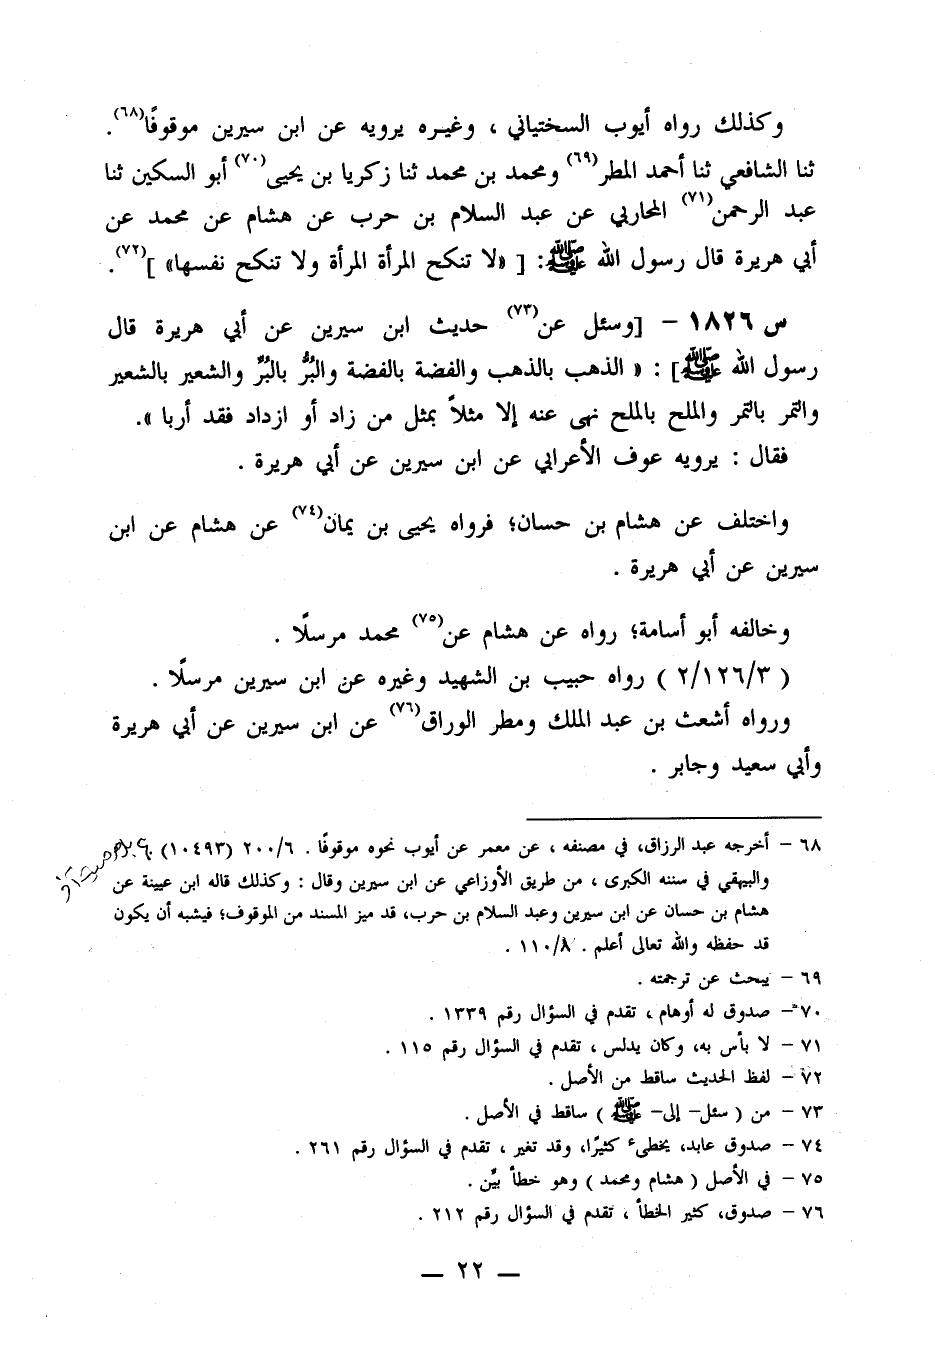 وكذلك رواه أيوب السختياني ، وغيره يرويه عن ابن سيرين موقوفًا(٦٨).
ثنا الشافعي ثنا أحمد المطر(٦٩) ومحمد بن محمد ثنا زكريا بن يحيى(٧٠) أبو السكين ثنا
عبد الرحمن(٧١) المحاربي عن عبد السلام بن حرب عن هشام عن محمد عن
أبي هريرة قال رسول الله ﷺ: [ «لا تنكح المرأة المرأة ولا تنكح نفسها» ](٧٢).
س ١٨٢٦ – [وسئل عن(٧٣) حديث ابن سيرين عن أبي هريرة قال
رسول الله ﷺ] : « الذهب بالذهب والفضة بالفضة والبُرُّ بالبُرٌ والشعير بالشعير
والتمر بالتمر والملح بالملح نهى عنه إلا مثلاً بمثل من زاد أو ازداد فقد أربا ».
فقال : يرويه عوف الأعرابي عن ابن سيرين عن أبي هريرة .
واختلف عن هشام بن حسان؛ فرواه يحيى بن يمان(٧٤) عن هشام عن ابن
سيرين عن أبي هريرة .
وخالفه أبو أسامة؛ رواه عن هشام عن(٧٥) محمد مرسلًا .
( ٢/١٢٦/٣ ) رواه حبيب بن الشهيد وغيره عن ابن سيرين مرسلًا .
ورواه أشعث بن عبد الملك ومطر الوراق(٧٦) عن ابن سيرين عن أبي هريرة
وأبي سعيد وجابر .
٦٨ – أخرجه عبد الرزاق، في مصنفه ، عن معمر عن أيوب نحوه موقوفًا . ٢٠٠/٦ (١٠٤٩٣)
والبيهقي في سننه الكبرى ، من طريق الأوزاعي عن ابن سيرين وقال : وكذلك قاله ابن عيينة عن
هشام بن حسان عن ابن سيرين وعبد السلام بن حرب، قد ميز المسند من الموقوف؛ فيشبه أن يكون
قد حفظه والله تعالى أعلم . ١١٠/٨ .
٦٩ – يبحث عن ترجمته .
٧٠ – صدوق له أوهام ، تقدم في السؤال رقم ١٣٣٩ .
٧١ – لا بأس به، وكان يدلس ، تقدم في السؤال رقم ١١٥ .
٧٢ – لفظ الحديث ساقط من الأصل .
٧٣ – من ( سئل– إلى– ﷺ ) ساقط في الأصل .
٧٤ – صدوق عابد، يخطىء كثيرًا، وقد تغير ، تقدم في السؤال رقم ٢٦١ .
٧٥ – في الأصل ( هشام ومحمد ) وهو خطأ بيِّن .
٧٦ – صدوق، كثير الخطأ ، تقدم في السؤال رقم ٢١٢ .
— ٢٢ —